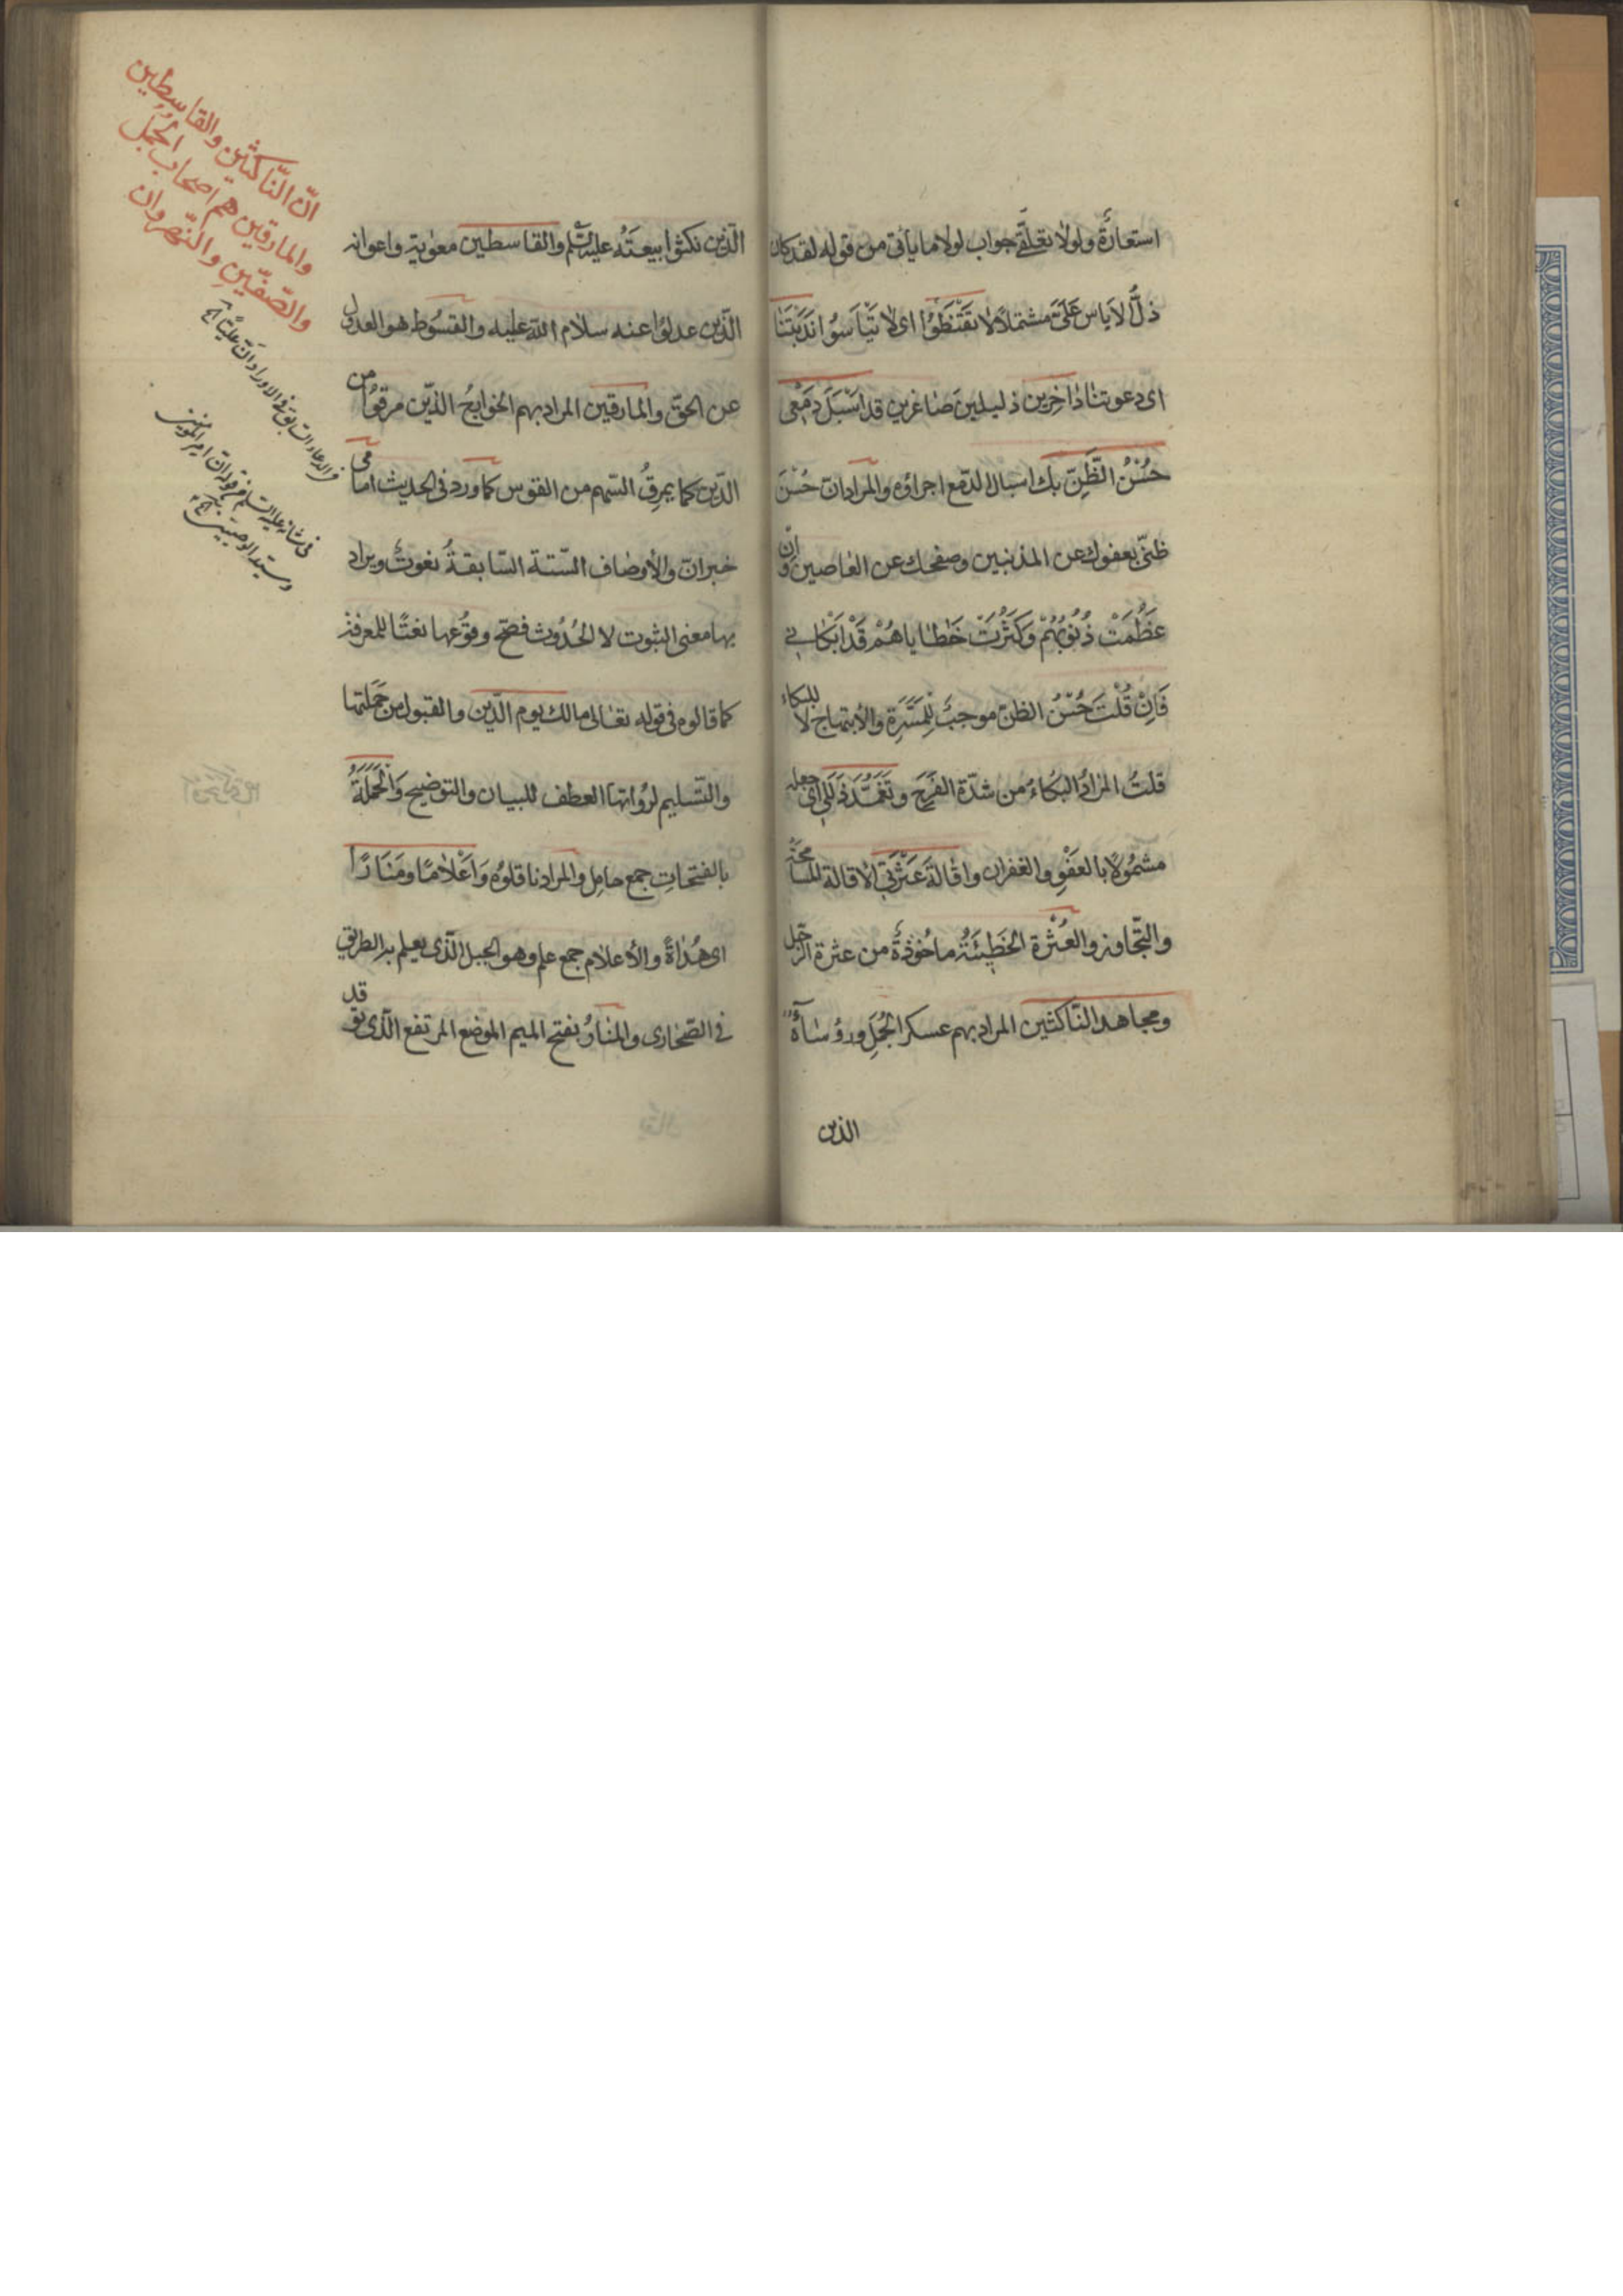 استعارة ولولا تعلّق جواب لولا ما يأتى من قوله لقد كان
ذلّ لاياس عَلَىَّ مشتملاً لا تَقْنَطُوْا اى لا تيأسوا نَدَبْتَنَا
اى دعوتنا دَاخِرِين ذليلين صاغرين قد اَسْبَلَ دَمْعِى
حُسْنُ الظَّنِّ بك اسبال الدّمع اجراؤه والمراد ان حُسْنَ
ظنّى بعفوك عن المذنبين وصفحك عن العاصين وَاِن
عَظُمَتْ ذُنُوبُهُمْ وَكَثُرَتْ خَطاياهُمْ قَدْ اَبْكانى
فَاِنْ قُلْتَ حُسْنُ الظن موجبٌ لِلمَسَّرة والأبتهاج لا للبكاء
قلتُ المرادُ البكاءُ من شدّة الفَرَح وتَغَمُّدَ زَلَلى اى جعله
مشمُولاً بالعَفْوِ والغفران واقالَةَ عَثْرَتى الاقالة المسامحة
والتّجاوز والعَثْرة الخَطِيْئَتُه ماخُوذةٌ من عثرة الرّجل
ومجاهد النّاكثين المراد بهم عسكر الجَمَلِ ورؤساؤه
الذين
الّذين نكثوا بيعتَه عليه السلم والقاسطين معوية واعوانه
الّذين عدلوا عنه سلام اللّه عليه والقسُوط هو العدول
عن الحقّ والمارقين المراد بهم الخوارج الّذين مرقوُا من
الدّين كما يمرقُ السّهم من القوس كما ورد فى الحديث امامى
خبر انّ والأوصاف السّتة السّابقةُ نعوت ويراد
بها معنى الثبوت لا الحُدُوث فصّح وقوُعها نعتًا للمعرفة
كما قالوه فى قوله تعالى مالك يوم الدّين والقبول من حَمَلتها
والتّسليم لرُواتها العطف للبيان والتوضيح وَالحَمَلَةُ
بالفتحاتِ جمع حامِل والمراد ناقلوُه وَاَعْلامًا ومَنَارًا
اى هُدٰاةً والأعلام جمع علم وهو الجبل الّذى يعلم به الطريق
فى الصّحارى والمنارُ بفتح الميم الموضع المرتفع الّذى توقد
انّ النّاكثين والقاسطين
والمارقين هم اصحاب الجمل
والصّفين والنّهروان
فى الدعاء السابق فى الاوراد انّ عليّا
فى شانه عليه السّلم قوله انّ امير المؤمنين
وسيّد الوصيّين